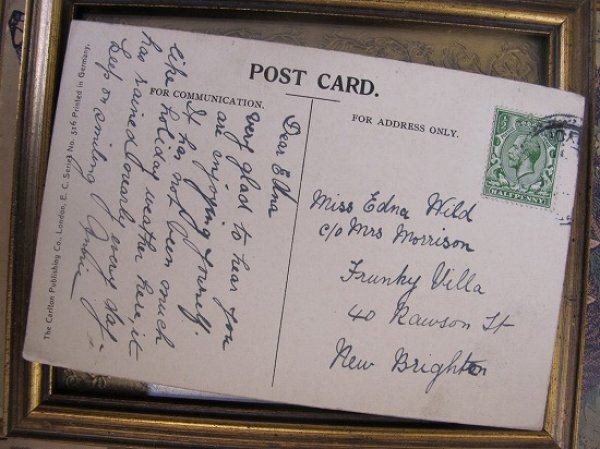 POST CARD.
FOR COMMUNICATION.
FOR ADDRESS ONLY.
Dear Edna
very glad to hear you
are enjoying yourself.
It has not been much
like holiday weather here it
has rained nearly every day
keep on smiling
Miss Edna Wild
c/o Mrs Morrison
Frunky Villa
40 Rawson St
New Brighton
HALFPENNY
The Carlton Publishing Co., London, E. C. Series No. 516 Printed in Germany.